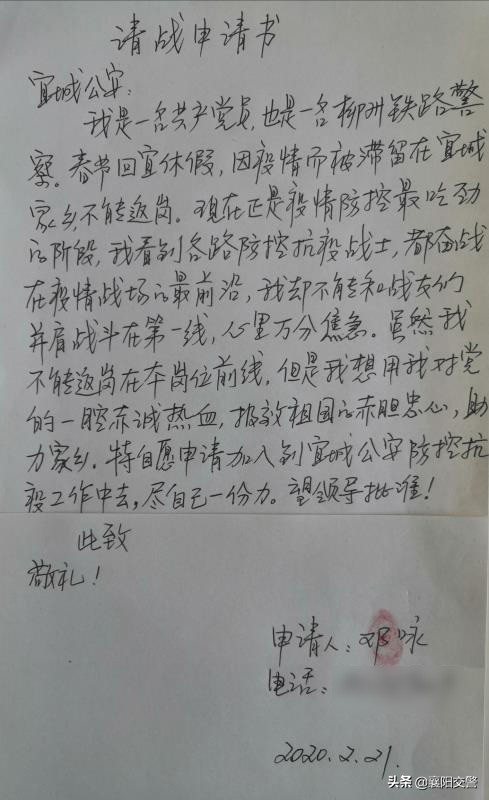 请战申请书
宜城公安:
我是一名共产党员,也是一名柳州铁路警
察。春节回宜休假,因疫情而被滞留在宜城
家乡,不能返岗。现在正是疫情防控最吃劲
的阶段,我看到各路防控抗疫战士,都奋战
在疫情战场的最前沿,我却不能和战友们
并肩战斗在第一线,心里万分焦急。虽然我
不能返岗在本岗位前线,但是我想用我对党
的一腔赤诚热血,报效祖国的赤胆忠心,助
力家乡.特自愿申请加入到宜城公安防控抗
疫工作中去,尽自己一份力。望领导批准!
此致
敬礼!
申请人:邓咏
电话:
2020.2.21.
头条@襄阳交警